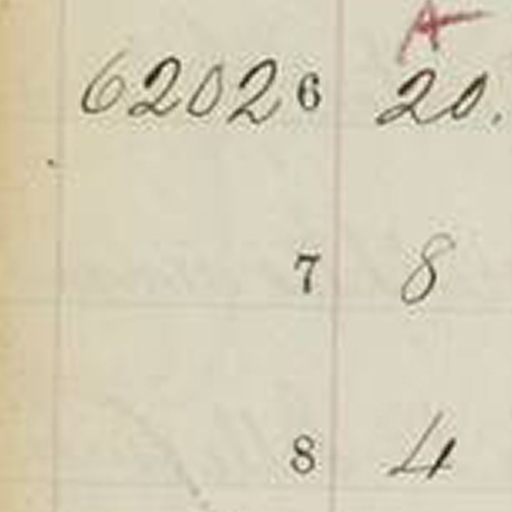 A
62026 20.
7 8
8 4